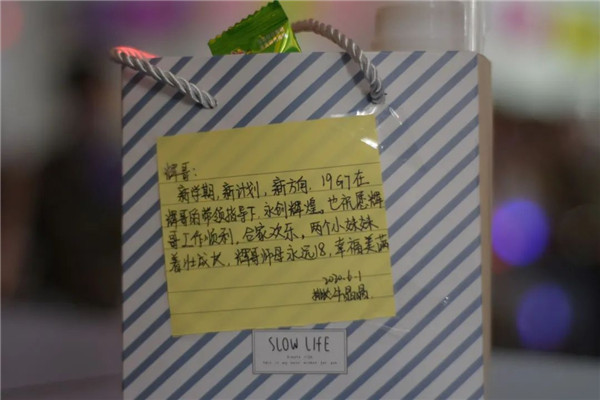 辉哥：
新学期，新计划，新方向，1967在
辉哥的带领指导下，永创辉煌。也祝愿辉
哥工作顺利，合家欢乐，两个小妹妹
着壮成长，辉哥师母永远18，幸福美满
2020.6.1
牛晶晶
SLOW LIFE